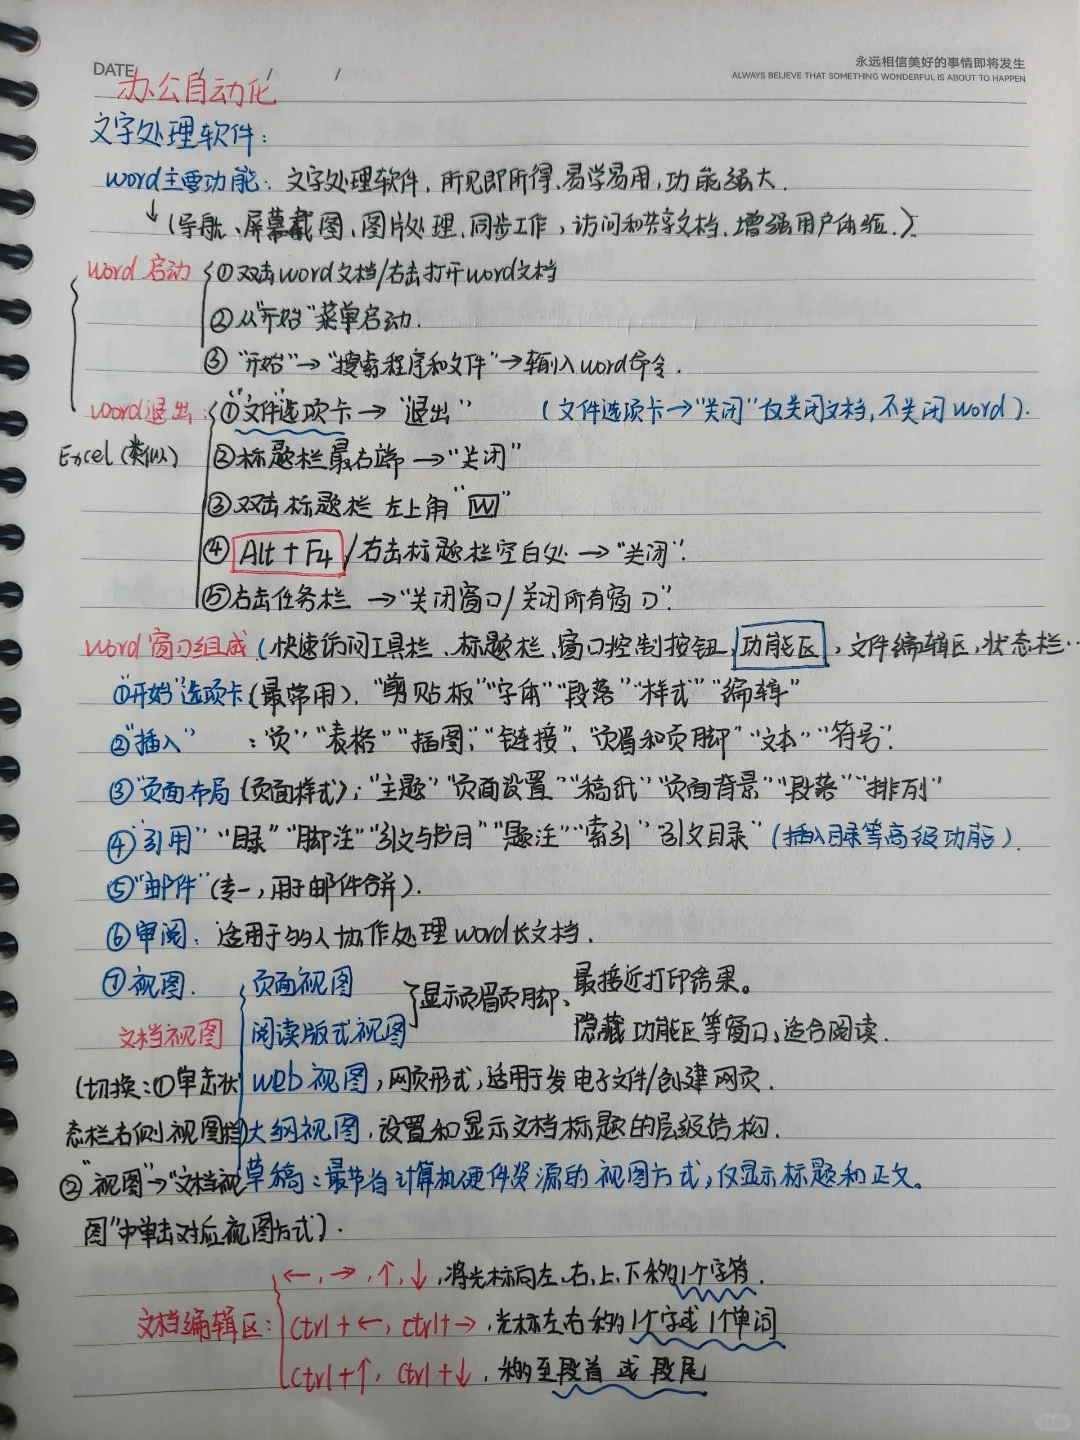 永远相信美好的事情即将发生
ALWAYS BELIEVE THAT SOMETHING WONDERFUL IS ABOUT TO HAPPEN
DATE / / /
办公自动化
文字处理软件：
word主要功能：文字处理软件，所见即所得、易学易用，功能强大.
↓(导航、屏幕截图、图片处理、同步工作，访问和共享文档、增强用户体验.).
word启动 {①双击word文档/右击打开word文档
②从“开始”菜单启动.
③“开始”→“搜索程序和文件”→输入word命令.
word退出：{①“文件选项卡→“退出” (文件选项卡→“关闭”仅关闭文档，不关闭word).
Excel(类似) ②标题栏最右端→“关闭”
③双击标题栏左上角“W”
④Alt+F4/右击标题栏空白处→“关闭”.
⑤右击任务栏→“关闭窗口/关闭所有窗口”.
word窗口组成(快速访问工具栏、标题栏、窗口控制按钮、功能区，文件编辑区，状态栏…
①“开始”选项卡(最常用)，“剪贴板”“字体”“段落”“样式”“编辑”
②“插入” ：“页”“表格”“插图”，“链接”、“页眉和页脚”“文本”“符号”.
③“页面布局(页面样式)；“主题”“页面设置”“稿纸”“页面背景”“段落”“排列”
④“引用”“目录”“脚注”“引文与书目”“题注”“索引”“引文目录”(插入目录等高级功能).
⑤“邮件”(专一，用于邮件合并).
⑥审阅：适用于多人协作处理word长文档.
⑦视图. {页面视图 }显示页眉页脚、最接近打印结果。
文档视图 阅读版式视图 隐藏功能区等窗口，适合阅读.
(切换：①单击状 web视图，网页形式，适用于发电子文件/创建网页.
态栏右侧视图栏 大纲视图，设置和显示文档标题的层级结构.
②“视图”→“文档视 草稿：最节省计算机硬件资源的视图方式，仅显示标题和正文。
图”中单击对应视图方式).
{←，→，↑，↓，将光标向左、右、上、下移动1个字符.
文档编辑区：Ctrl+←，ctrl+→，光标左右移动1个字或1个单词
Ctrl+↑，Ctrl+↓，移动至段首或段尾